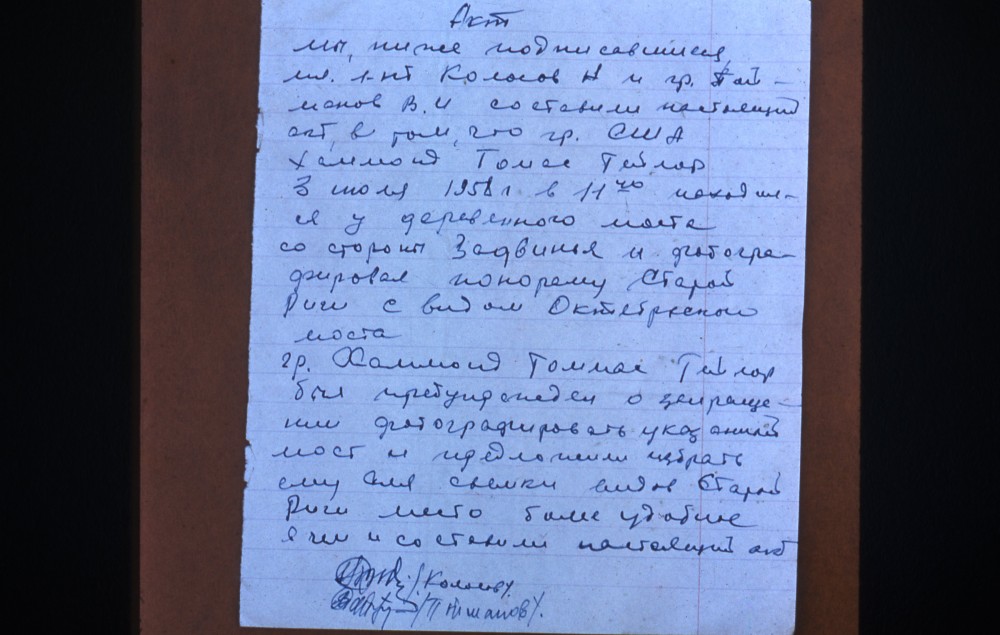 Акт
мы, ниже подписавшиеся,
мл. л-нт Колосов Н и гр. Пай-
манов В. И составили настоящий
акт, в том, что гр. США
Хаммонд Томас Тейлор
3 июля 1958 г. в 11 40 находил-
ся у деревянного моста
со стороны Задвинья и фотогра-
фировал понораму Старой
Риги с видом Октябрьского
моста
гр. Хаммонд Томмас Тейлор
был предупрежден о запреще-
нии фотографировать указанный
мост и предложили избрать
ему для съемки видов Старой
Риги место более удобное
о чем и составили настоящий акт
/Колосов/.